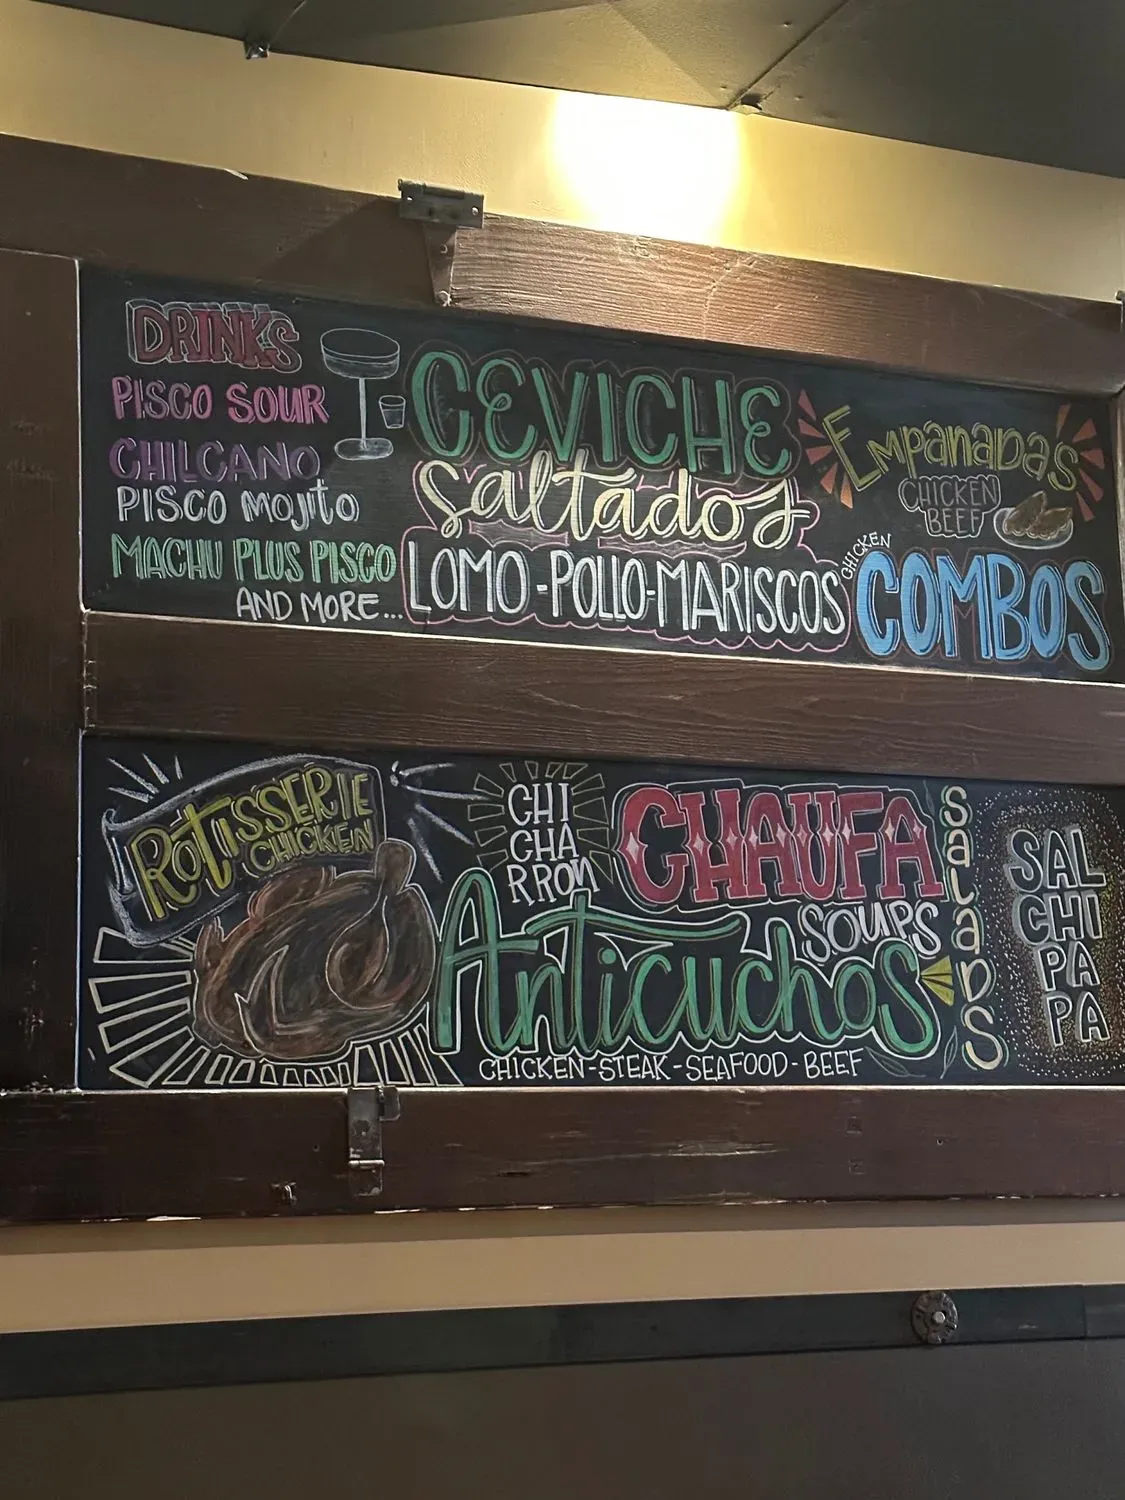 DRINKS
PISCO SOUR
CHILCANO
PISCO MOJITO
MACHU PLUS PISCO
AND MORE...
CEVICHE
Saltados
LOMO-POLLO-MARISCOS
EMPANADAS
CHICKEN
BEEF
CHICKEN
COMBOS
ROTISSERIE
CHICKEN
CHI
CHA
RRON
CHAUFA
SOUPS
Anticuchos
CHICKEN-STEAK-SEAFOOD-BEEF
SaLaDS
SAL
CHI
PA
PA